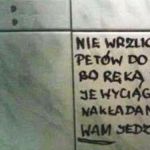 NIE WRZUC
PETÓW DO
BO RĘKĄ
JE WYCIĄG
NAKŁADAM
WAM JEDZ